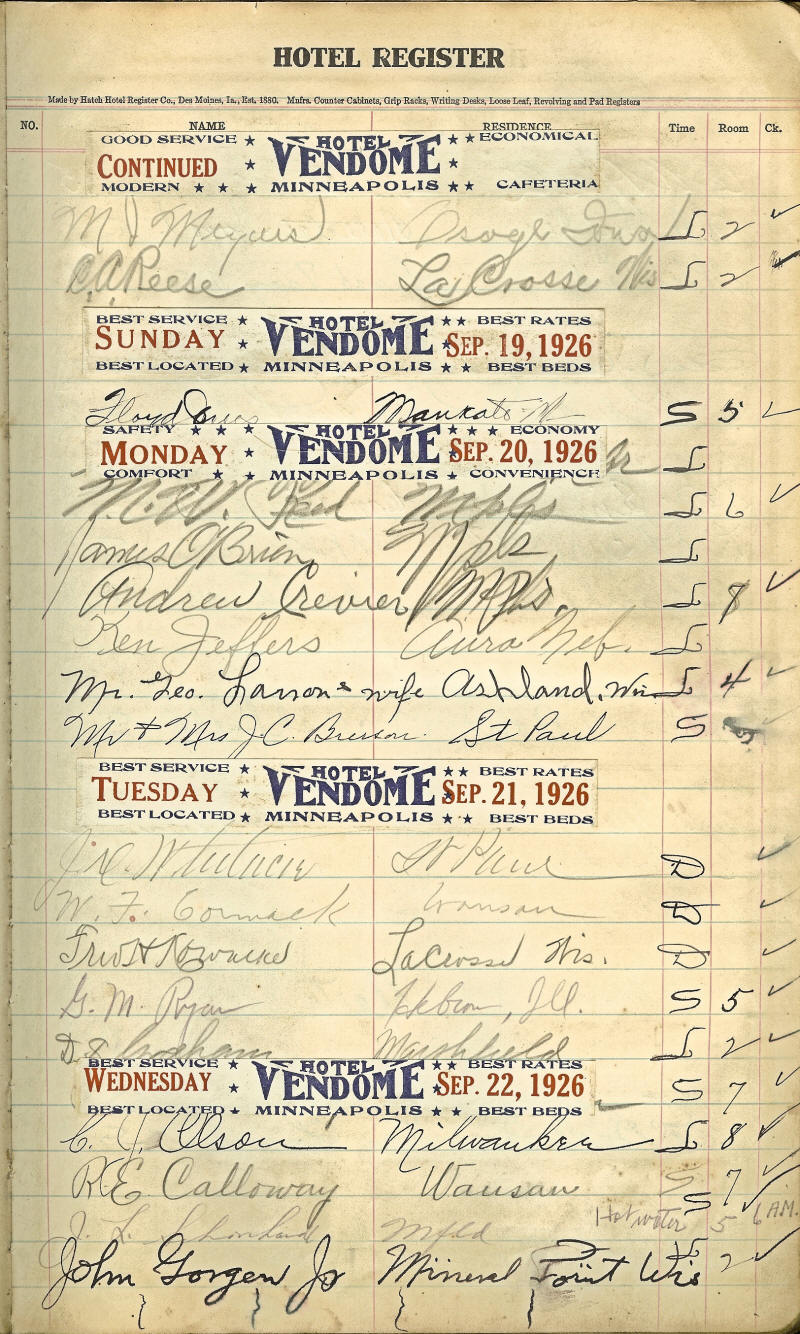 HOTEL REGISTER
Made by Hatch Hotel Register Co., Des Moines, Ia., Est. 1880. Mnfrs. Counter Cabinets, Grip Racks, Writing Desks, Loose Leaf, Revolving and Pad Registers
NO. NAME RESIDENCE Time Room Ck.
GOOD SERVICE ★ HOTEL ★ ★ ECONOMICAL
CONTINUED ★ VENDOME ★
MODERN ★ ★ ★ MINNEAPOLIS ★ ★ CAFETERIA
M J Meyers Osage Iowa L 2 ✓
C.A. Reese La Crosse Wis L 2
BEST SERVICE ★ HOTEL ★ ★ BEST RATES
SUNDAY ★ VENDOME ★ SEP. 19, 1926
BEST LOCATED ★ MINNEAPOLIS ★ ★ BEST BEDS
Floyd Mankato S 5 ✓
SAFETY ★ ★ ★ HOTEL ★ ★ ★ ECONOMY
MONDAY ★ VENDOME SEP. 20, 1926 L
COMFORT ★ ★ MINNEAPOLIS ★ CONVENIENCE
M.W. Mpls L 6 ✓
James O'Brien Mpls L
Andrew Crevier Mpls. L 8 ✓
Ken Jeffers Neb. L
Mr. Geo. Larson & wife Ashland, Wis L 4 ✓
Mr + Mrs J.C. St Paul S
BEST SERVICE ★ HOTEL ★ ★ BEST RATES
TUESDAY ★ VENDOME ★ SEP. 21, 1926
BEST LOCATED ★ MINNEAPOLIS ★ ★ BEST BEDS
St Paul D ✓
W. F. Cormack Wausau D ✓
LaCrosse Wis. D ✓
G. M. Ryan Hebron, Ill. S 5 ✓
Marshfield L 2 ✓
BEST SERVICE ★ HOTEL ★ ★ BEST RATES
WEDNESDAY ★ VENDOME ★ SEP. 22, 1926 S 7 ✓
BEST LOCATED ★ MINNEAPOLIS ★ ★ BEST BEDS
C. J. Olson Milwaukee L 8 ✓
R E Calloway Wausau S 7 ✓
J. L. Mfld S Hot water 5 6 A.M.
John Gorgen Jr Mineral Point Wis L 2 ✓